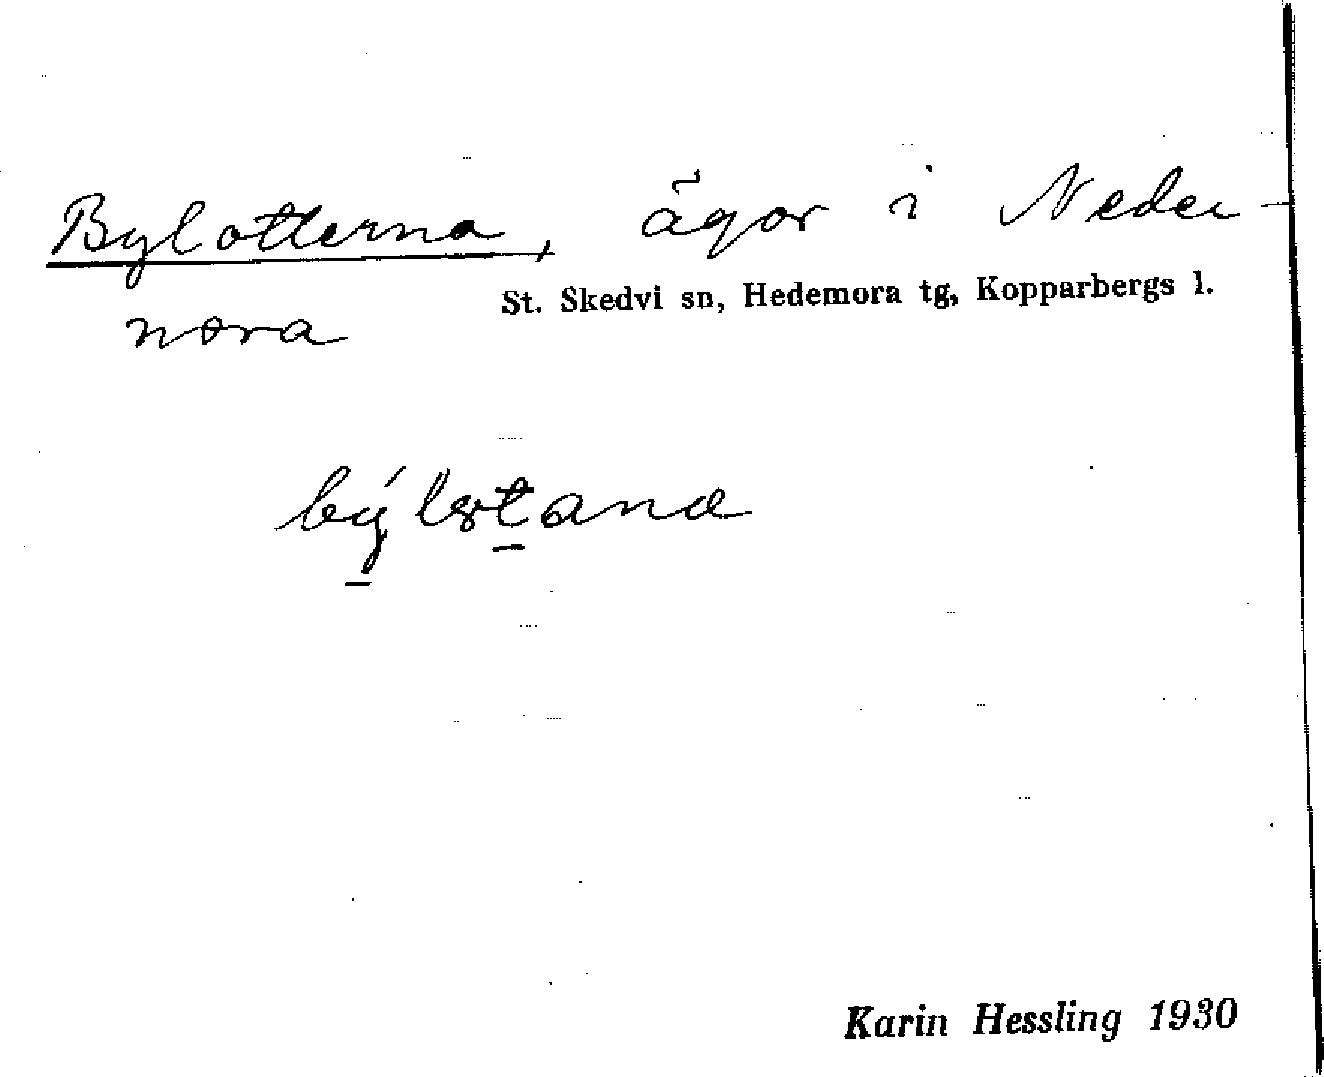 Bylotterna, ägor i Neder-
St. Skedvi sn, Hedemora tg, Kopparbergs l.
nora
Karin Hessling 1930